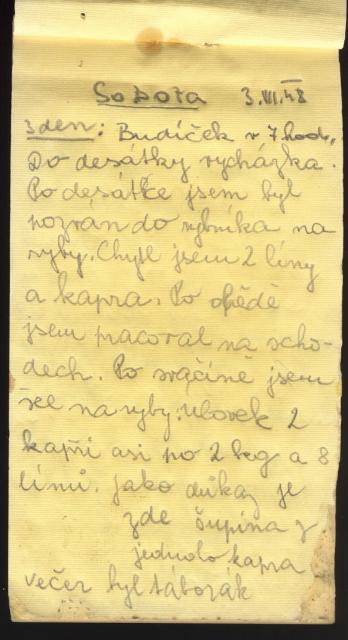 Sobota 3.VII.48
3 den: Budíček v 7 hod.,
Do desátky vycházka.
Po desátce jsem byl
pozván do rybníka na
ryby. Chytl jsem 2 líny
a kapra. Po obědě
jsem pracoval na scho-
dech. Po svačině jsem
šel na ryby: úlovek 2
kapři asi po 2 kg a 8
línů. Jako důkaz je
zde šupina z
jednoho kapra
večer byl táborák